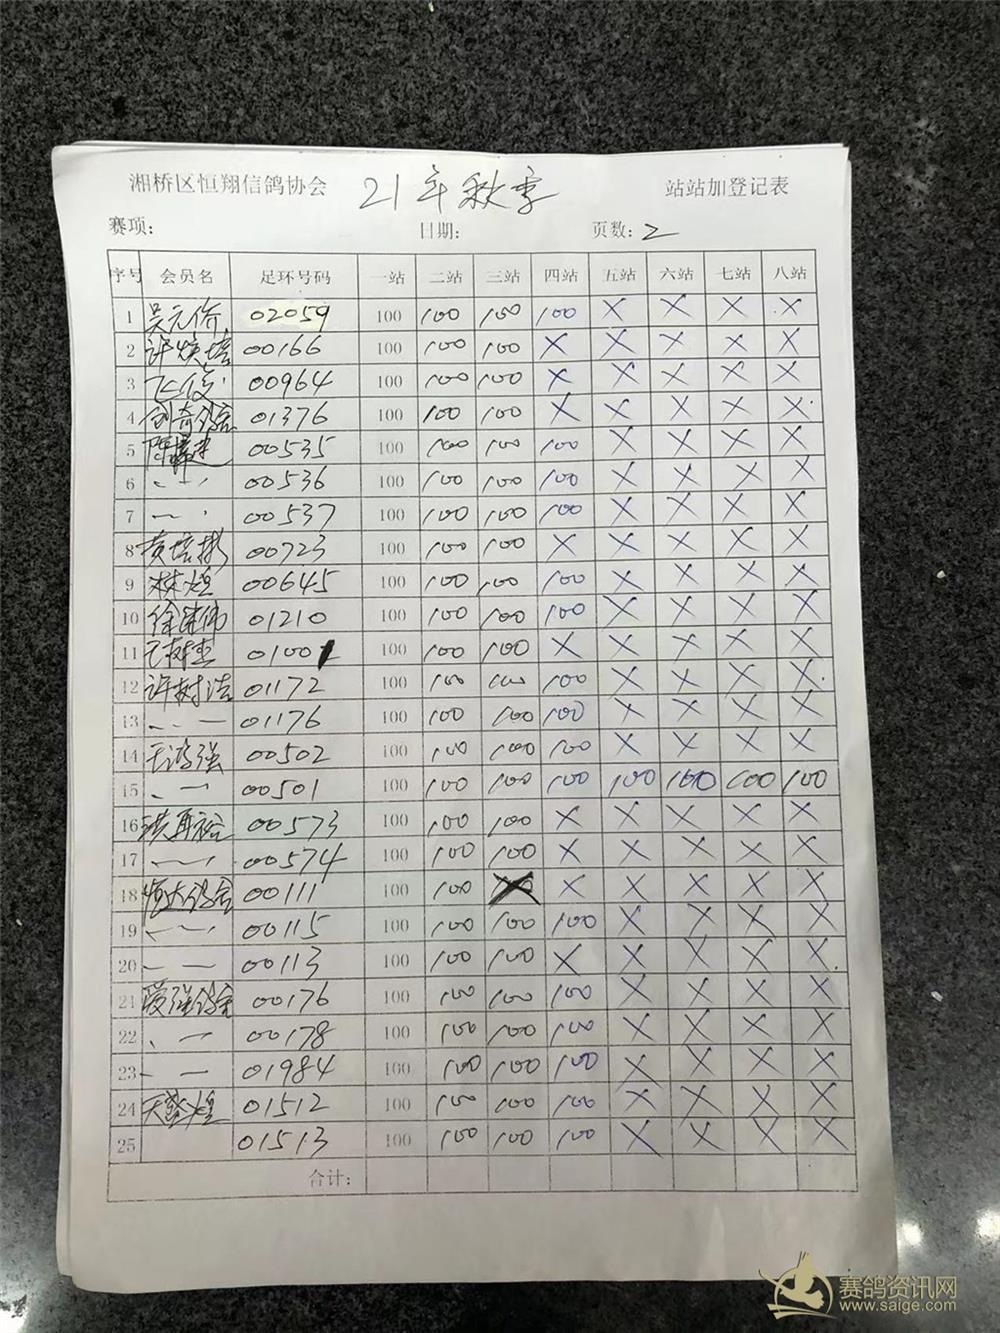 湘桥区恒翔信鸽协会 21年秋季 站站加登记表
赛项: 日期: 页数: 2
序号 会员名 足环号码 一站 二站 三站 四站 五站 六站 七站 八站
1 吴元侨 02059 100 100 100 100 X X X X
2 许焕培 00166 100 100 100 X X X X X
3 飞俊 00964 100 100 100 X X X X X
4 创奇鸽舍 01376 100 100 100 X X X X X
5 陈 00535 100 100 100 100 X X X X
6 、一, 00536 100 100 100 100 X X X X
7 一, 00537 100 100 100 100 X X X X
8 黄培彬 00723 100 100 100 X X X X X
9 林煌 00645 100 100 100 100 X X X X
10 徐 伟 01210 100 100 100 100 X X X X
11 树杰 01001 100 100 100 X X X X X
12 许树浩 01172 100 100 100 100 X X X X
13 、、一 01176 100 100 100 100 X X X X
14 强 00502 100 100 100 100 X X X X
15 、一 00501 100 100 100 100 100 100 100 100
16 洪再裕 00573 100 100 100 X X X X X
17 、一、 00574 100 100 100 X X X X X
18 恒达鸽舍 00111 100 100 X X X X X
19 、一、 00115 100 100 100 100 X X X X
20 、一 00113 100 100 100 X X X X X
21 爱强鸽舍 00176 100 100 100 100 X X X X
22 、一 00178 100 100 100 100 X X X X
23 、一 01984 100 100 100 100 X X X X
24 煌 01512 100 100 100 100 X X X X
25 01513 100 100 100 100 X X X X
合计:
赛鸽资讯网
www.saige.com